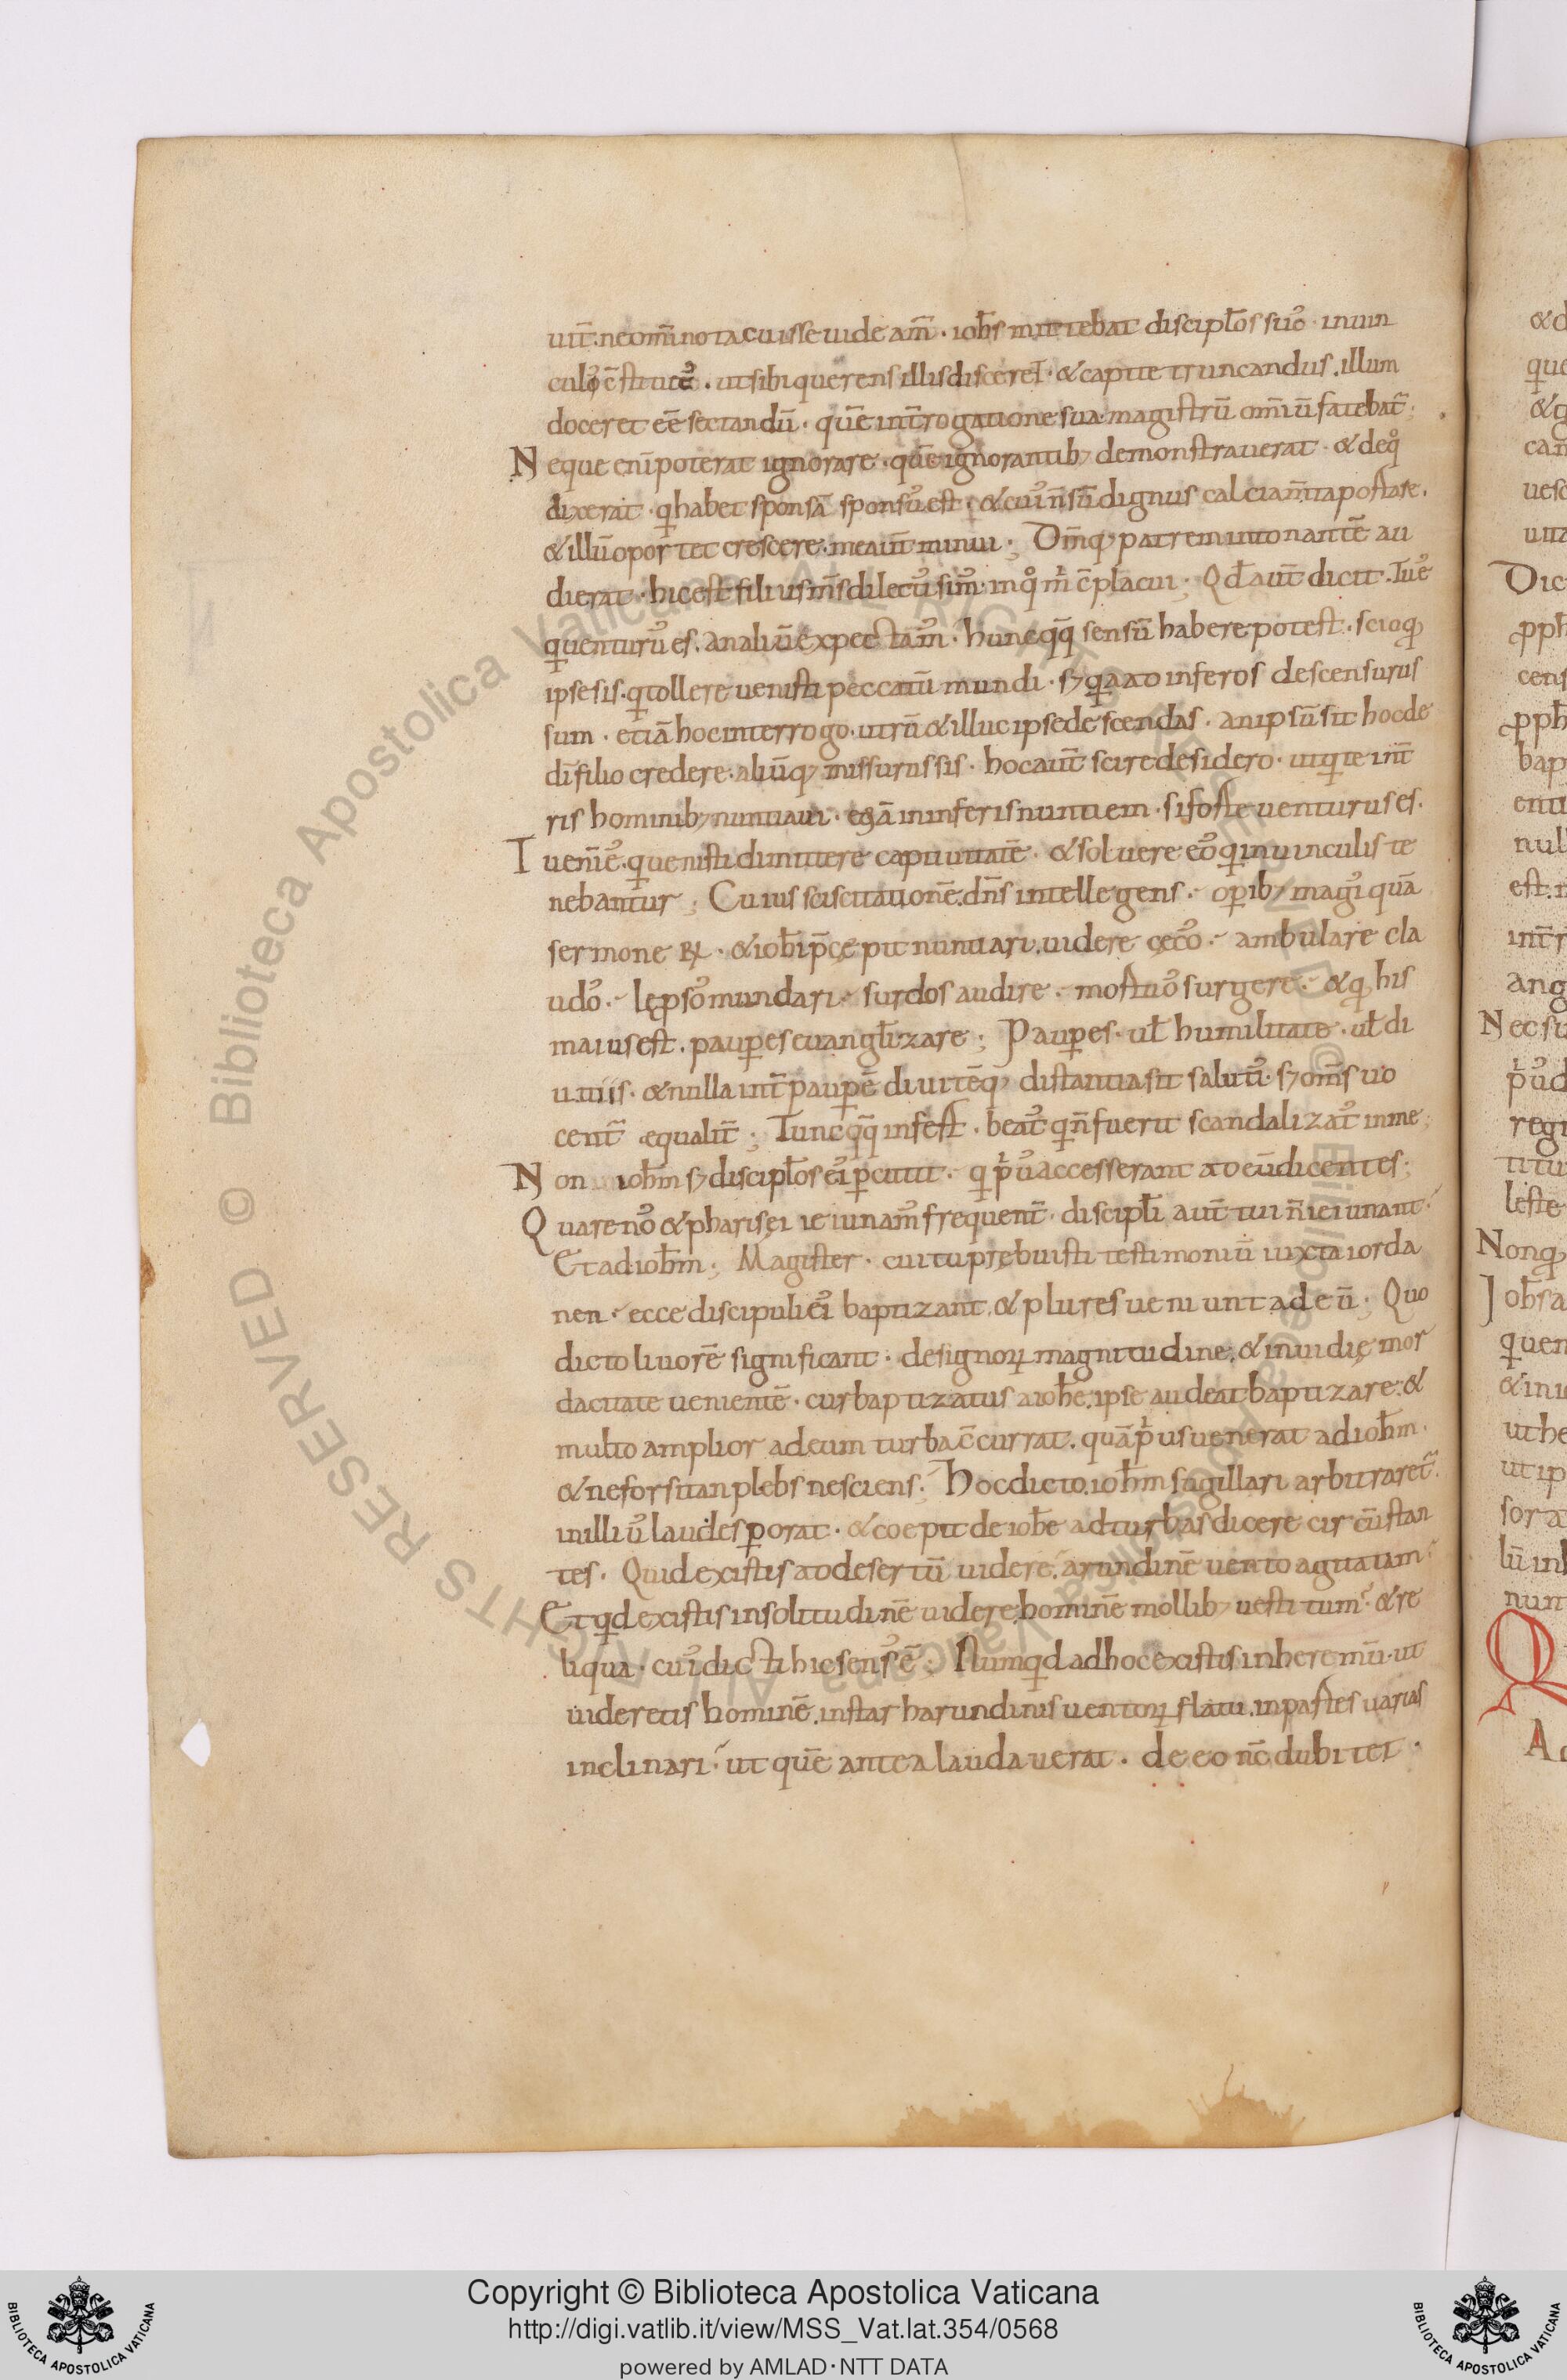 uit̄. ne om̄ino tacuisse uideam̄. ioh̄s mittebat discipl̄os suo᷒ in uin
culo᷒ c̄stitut᷒. ut sibi querens illis disceret. & capite truncandus. illum
doceret ee᷒̄ sectandū. quē int̄rogatione sua magistrū om̄iū fatebat̄;
Neque eni᷒̄ poterat ignorare. quē ignorantib; demonstrauerat. & de qo
dixerat. qi habet sponsā sponsu᷒ est. & cui᷒ n̄ sū dignus calciam̄ta postare.
& illū oportet crescere. me aut̄ minui; Dm̄q; patrem intonantē au
dierat. hic est filius m̄s dilectu᷒ sim᷒. in qo m̄ c̄placui; Qd̄ aut̄ dicit. Tu e᷒
qui uenturu᷒ es. an aliū expectam᷒. hunc qq̄ sensū habere potest. scio qd
ipse sis. qi tollere uenisti peccatū mundi. s; qia ad inferos descensurus
sum. etiā hoc interrogo. utrū & illuc ipse descendas. an ipsū sit hoc de
dī filio credere. aliūq; missurus sis. hoc aut̄ scire desidero. ut qi te int̄
ris hominib; nuntiaui. etiā in inferis nuntiem. si foste uenturus es.
Tu eni᷒̄ e᷒. qui uenisti dimittere captiuitatē. & soluere eo᷒ qi in uinculis te
nebantur; Cuius sciscitationē. dn̄s intellegens. opib; magi᷒ quā
sermone R. & ioh̄i p̄cepit nuntiari. uidere cęco᷒. ambulare cla
udo᷒. lępso᷒ mundari. surdos audire. mostuo᷒ surgere. & qd his
maius est. paupes euangl̄izare; Paupes. ul̄ humilitate. ul̄ di
uitiis. & nulla int̄ paupē diuitēq; distantia sit saluti᷒. s; om̄s uo
cent̄ equalit̄; Tunc qq̄ infest. beat᷒ qi n̄ fuerit scandalizat᷒ in me;
Non ioh̄m s; discipl̄os ei᷒ pcutit. qi pi᷒u᷒ accesserant ad eū dicentes;
Quare no᷒ & pharisęi ieiunam᷒ frequent̄. discipl̄i aut̄ tui n̄ ieiunant.
Et ad ioh̄m; Magister. cui tu prębuisti testimoniū iuxta iorda
nen. ecce discipuli ei᷒ baptizant. & plures ueniunt ad eū; Quo
dicto liuorē significant. de signoꝝ magnitudine. & inuidię mor
dacitate uenientē. cur baptizatus a ioh̄e. ipse audeat baptizare. &
multo amplior ad eum turba c̄currat. quā pius uenerat ad ioh̄m.
& ne forsitan plebs nesciens. hoc dicto. ioh̄m sugillari arbitraret̄.
in illi᷒ laude sporat. & coepit de ioh̄e ad turbas dicere circūstan
tes. Quid existis ad desertū uidere. arundinē uento agitatam.
Et qid existis in solitudinē uidere. hominē mollib; uestitum. & re
liqua. cui᷒ dicti hic sens᷒ ē; Numqid ad hoc existis in heremū. ut
uideretis hominē. instar harundinis uentoꝝ flatu. in pastes uarias
inclinari. ut quē antea laudauerat. de eo nc̄ dubitet.
Copyright © Biblioteca Apostolica Vaticana
http://digi.vatlib.it/view/MSS_Vat.lat.354/0568
powered by AMLAD·NTT DATA